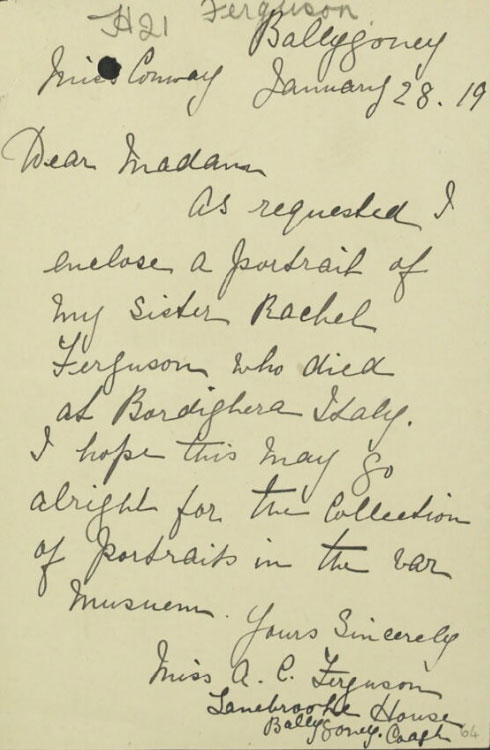 H21 Ferguson
Ballygoney
Miss Conway January 28. 19
Dear Madam
As requested I
enclose a portrait of
my sister Rachel
Ferguson who died
at Bordighera Italy.
I hope this may go
alright for the Collection
of portraits in the war
Musuem.
Yours Sincerely
Miss A. C. Ferguson
Lanebrooke House
Ballygoney. Coagh
64